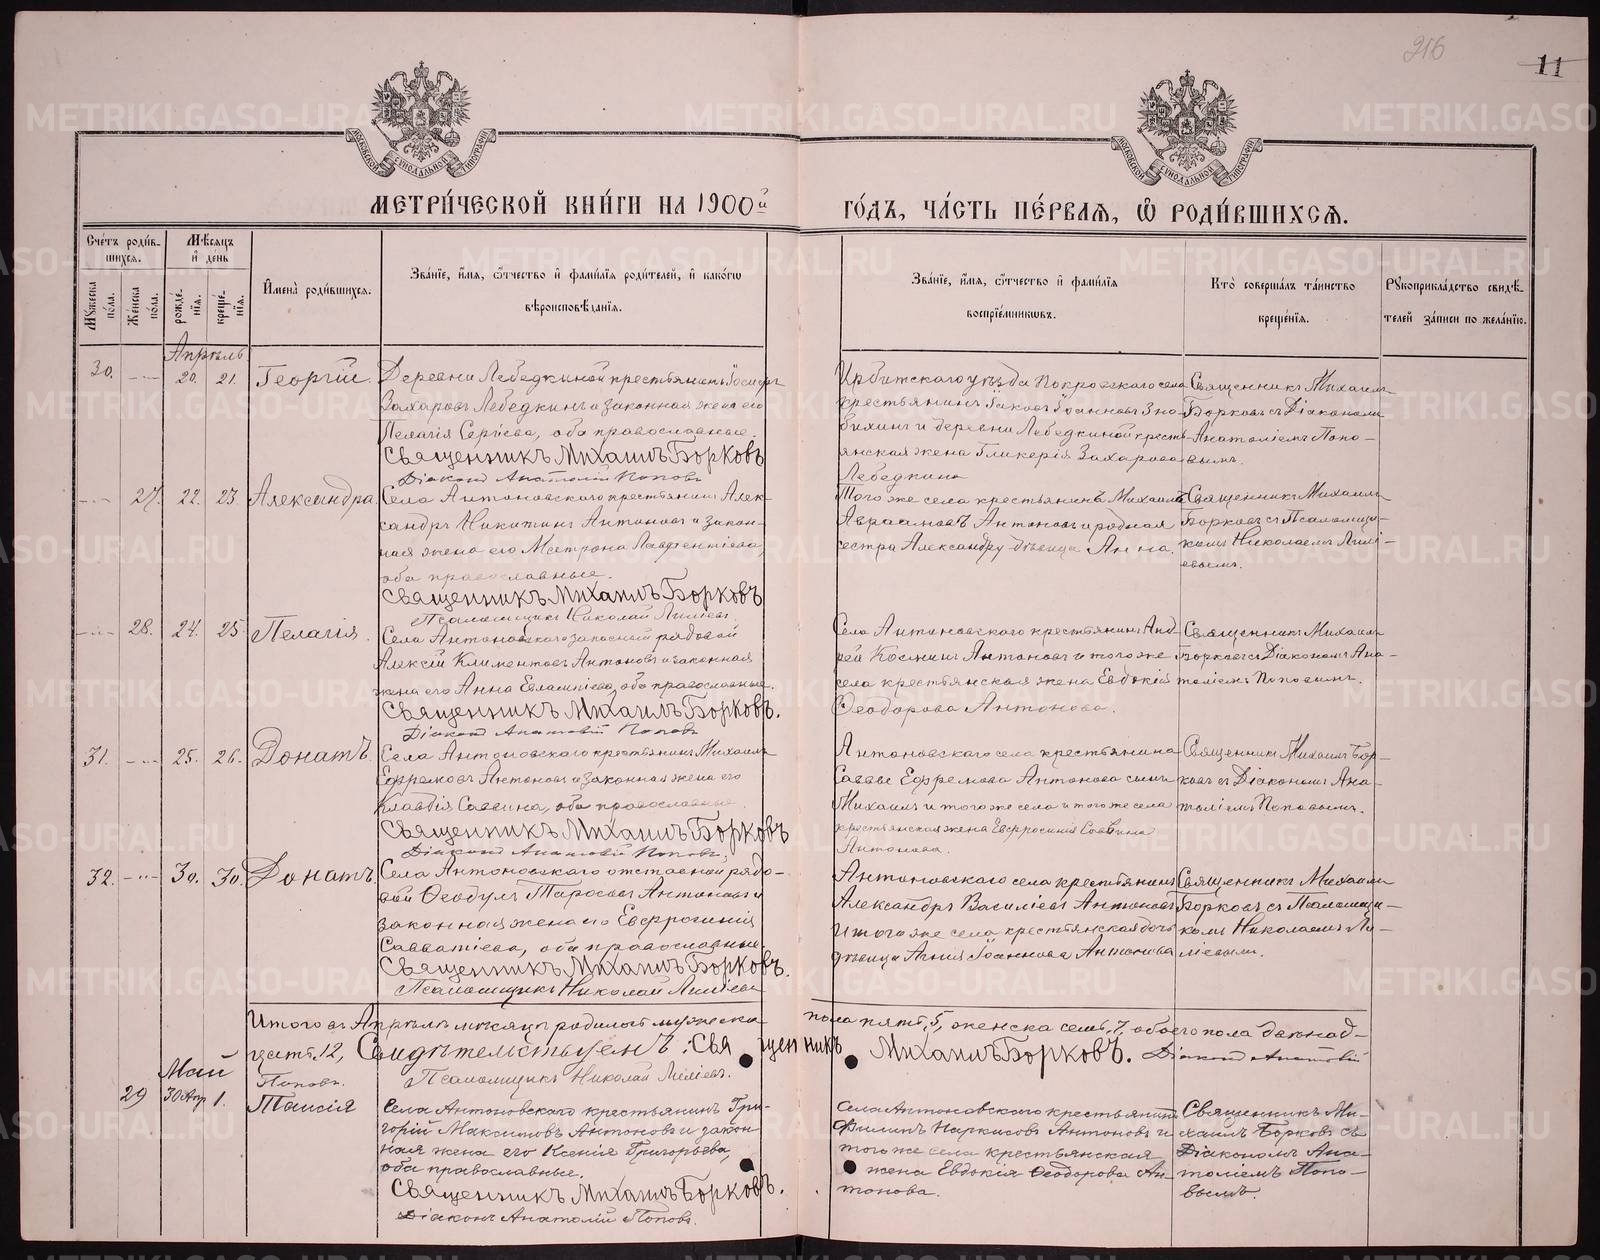 216
11
МЕТРИ́ЧЕСКОЙ КНИ́ГИ НА 1900й
ГО́ДЪ, ЧА́СТЬ ПЕ́РВАѦ, Ѡ РОДИ́ВШИХСѦ.
Счетъ родив-
шихся.
Мѣсяцъ
и день
Мужеска пола.
Женска пола.
рожде-
нія.
креще-
нія.
Имена родившихся.
Званіе, имя, отчество и фамилія родителей, и какого
вѣроисповѣданія.
Званіе, имя, отчество и фамилія
воспріемниковъ.
Кто совершалъ таинство
крещенія.
Рукоприкладство свидѣ-
телей записи по желанію.
Апрѣль
30.
20.
21.
Георгій.
Деревни Лебедкиной крестьянинъ Іосифъ
Захаровъ Лебедкинъ и законная жена его
Пелагія Сергіева, оба православные.
Священникъ Михаилъ Борковъ
Діаконъ Анатолій Поповъ
Ирбитскаго уѣзда Покровскаго села
крестьянинъ Іаковъ Іоанновъ Зно-
бихинъ и деревни Лебедкиной кресть-
янская жена Гликерія Захарова
Лебедкина
Священникъ Михаилъ
Борковъ съ Діакономъ
Анатоліемъ Попо-
вымъ.
27.
22.
23.
Александра
Села Антоновскаго крестьянинъ Алек-
сандръ Никитинъ Антоновъ и закон-
ная жена его Матрона Лаврентіева,
оба православные.
Священникъ Михаилъ Борковъ
Псаломщикъ Николай
Того же села крестьянинъ Михаилъ
Авраамовъ Антоновъ и родная
сестра Александру дѣвица Анна.
Священникъ Михаилъ
Борковъ съ Псаломщи-
комъ Николаемъ
28.
24.
25
Пелагія.
Села Антоновскаго запасный рядовой
Алексій Климентовъ Антоновъ и законная
жена его Анна Евлампіева, оба православные.
Священникъ Михаилъ Борковъ.
Діаконъ Анатолій Поповъ
Села Антоновскаго крестьянинъ Анд-
рей Косминъ Антоновъ и того же
села крестьянская жена Евдокія
Ѳеодорова Антонова.
Священникъ Михаилъ
Борковъ съ Діакономъ Ана-
толіемъ Поповымъ.
31.
25.
26.
Донатъ.
Села Антоновскаго крестьянинъ Михаилъ
Ефремовъ Антоновъ и законная жена его
Клавдія Саввина, оба православные.
Священникъ Михаилъ Борковъ
Діаконъ Анатолій Поповъ.
Антоновскаго села крестьянина
Саввы Ефремова Антонова сынъ
Михаилъ и того же села и того же села
крестьянская жена Евфросинія Саввина
Антонова.
Священникъ Михаилъ Бор-
ковъ съ Діакономъ Ана-
толіемъ Поповымъ.
32.
30.
30.
Донатъ.
Села Антоновскаго отставной рядо-
вой Ѳеодулъ Тарасовъ Антоновъ и
законная жена его Евфросинія
Савватіева, оба православные.
Священникъ Михаилъ Борковъ.
Псаломщикъ Николай
Антоновскаго села крестьянинъ
Александръ Василіевъ Антоновъ
и того же села крестьянская дочь
дѣвица Агнія Іоаннова Антонова
Священникъ Михаилъ
Борковъ съ Псаломщи-
комъ Николаемъ
Итого въ Апрѣлѣ мѣсяцѣ родилось мужеска
пола пять, 5, женска семь, 7, обоего пола двѣнад-
цать, 12, Свидѣтельствуемъ: Священникъ Михаилъ Борковъ. Діаконъ Анатолій
Поповъ.
Псаломщикъ Николай
Май
29
30 Апр
1.
Таисія
Села Антоновскаго крестьянинъ Гри-
горій Максимовъ Антоновъ и закон
ная жена его Ксенія Григорьева,
оба православные.
Священникъ Михаилъ Борковъ.
Діаконъ Анатолій Поповъ.
Села Антоновскаго крестьянинъ
Филиппъ Наркисовъ Антоновъ и
того же села крестьянская
жена Евдокія Ѳеодорова Ан-
тонова.
Священникъ Ми-
хаилъ Борковъ съ
Діакономъ Ана-
толіемъ Попо-
вымъ.
METRIKI.GASO-URAL.RU